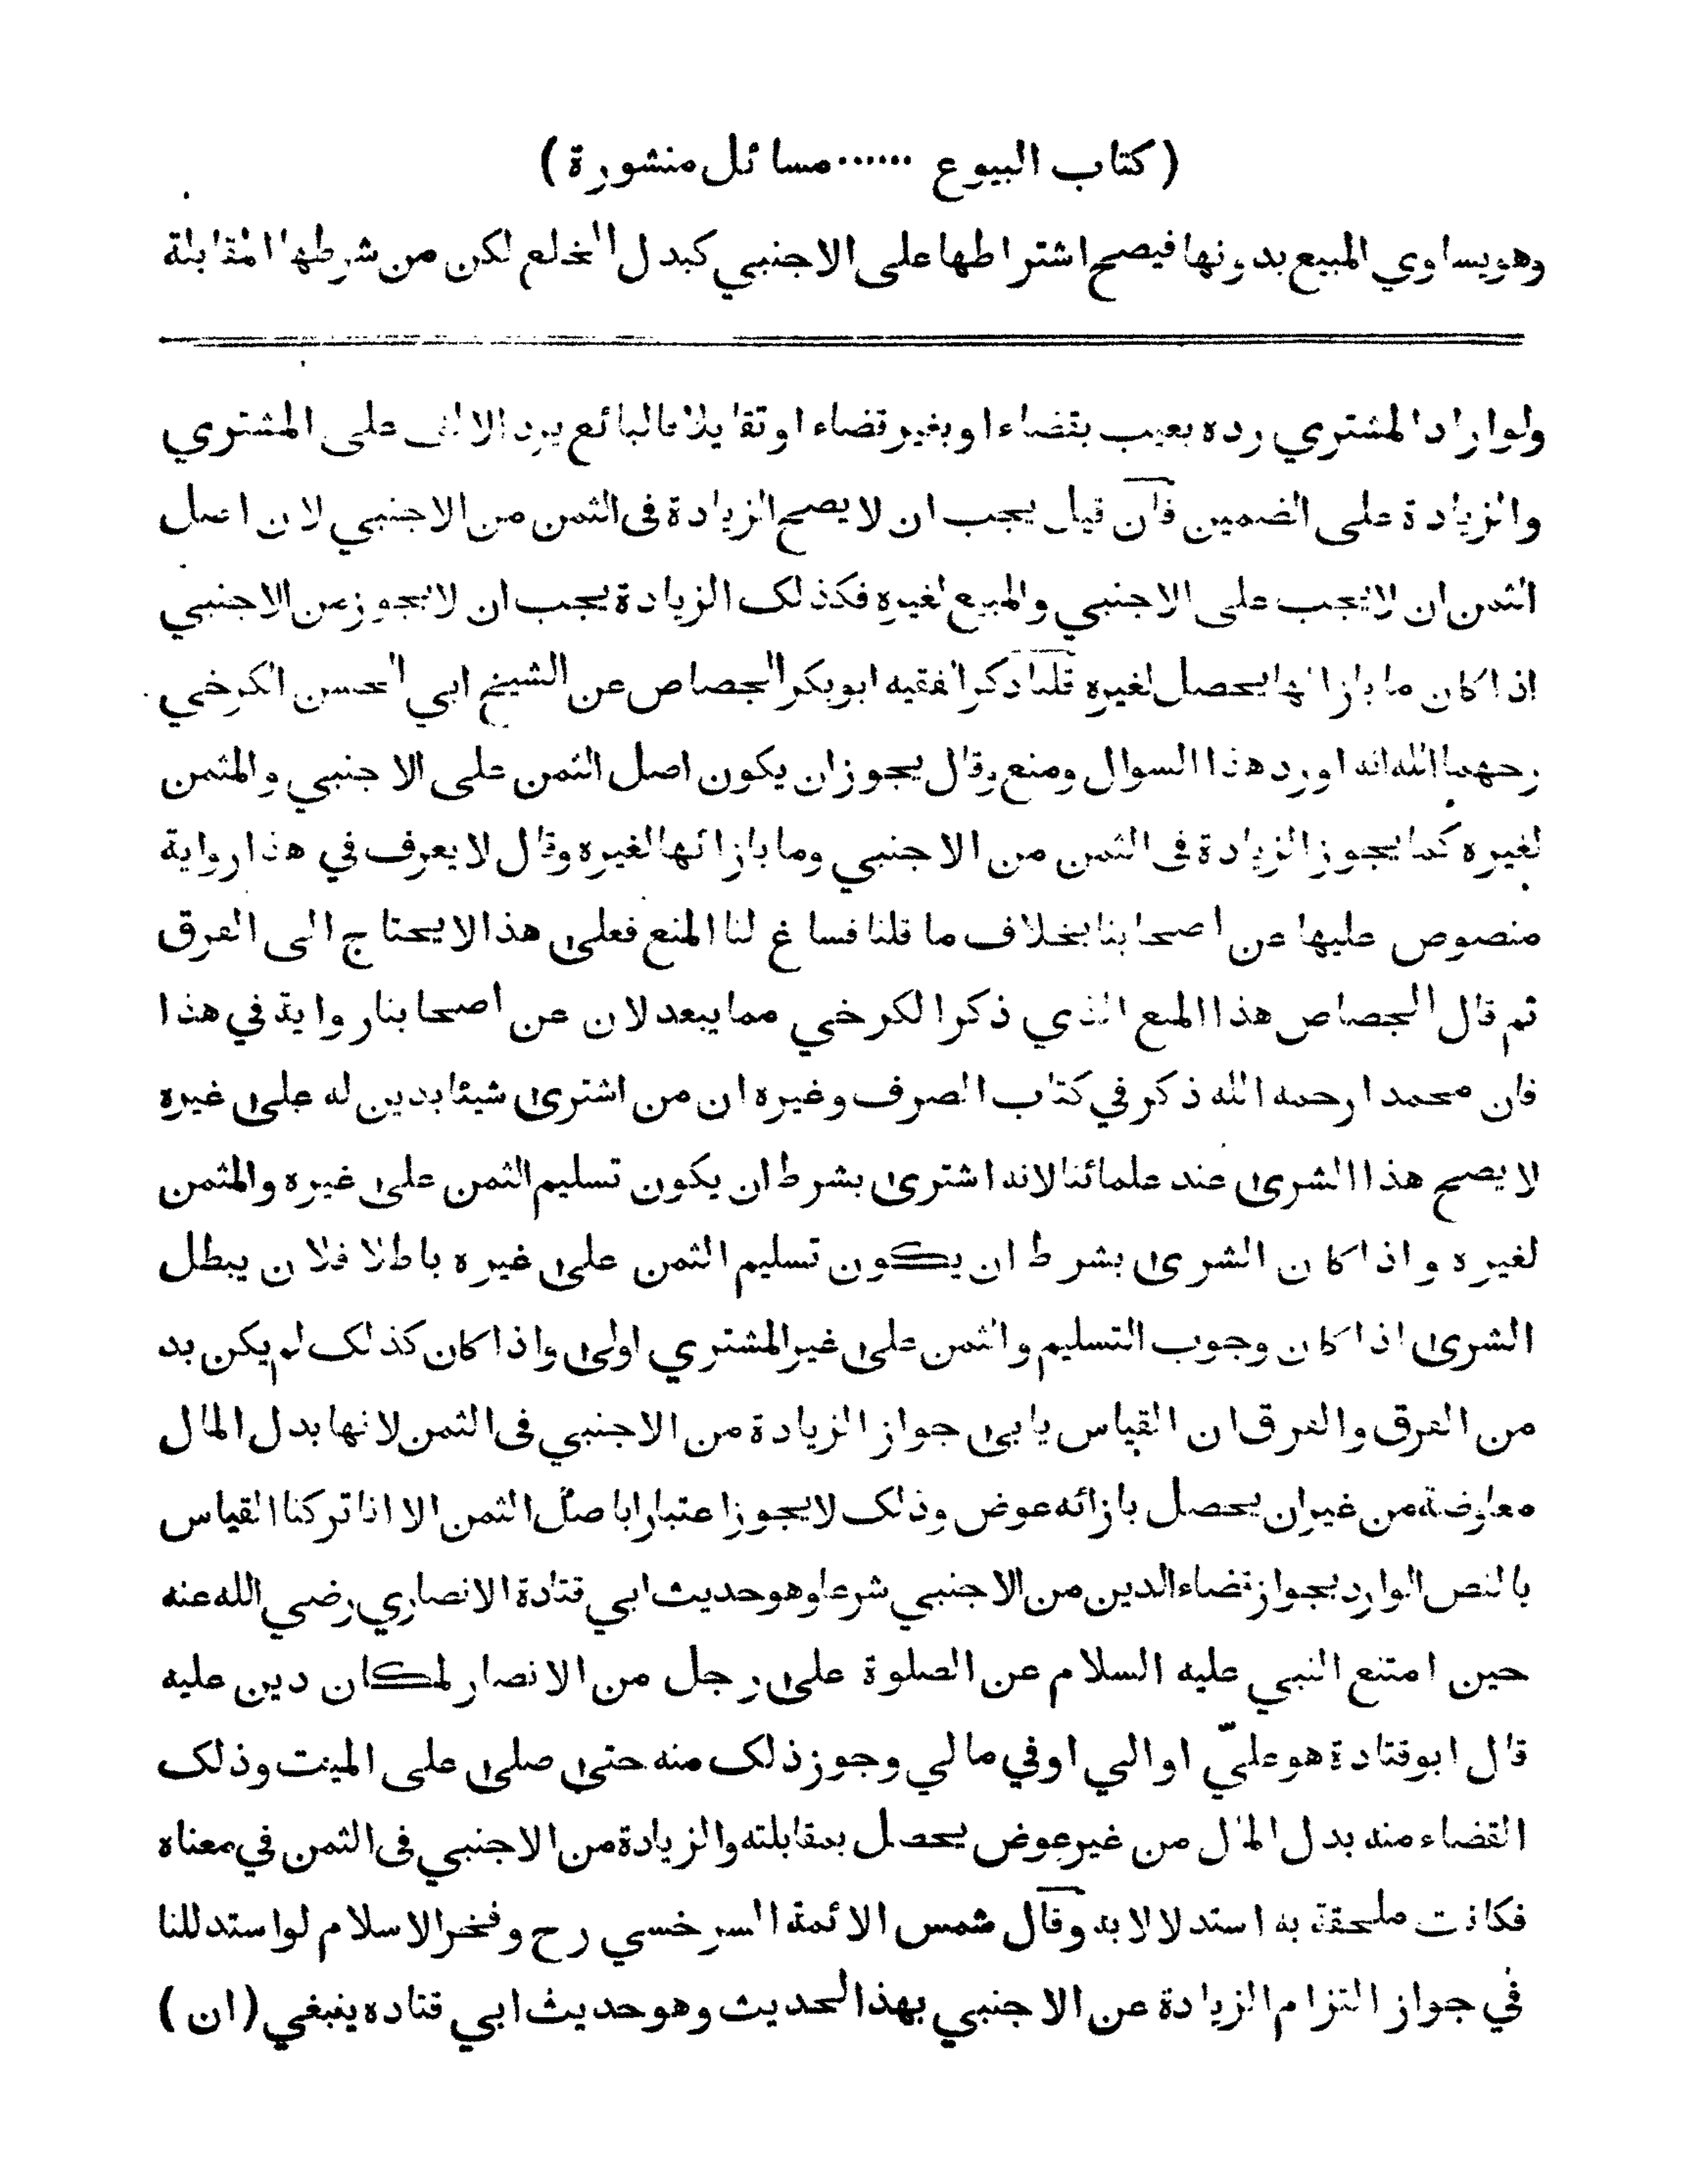 ( كتاب البيوع ...... مسائل منشورة )
وهو يساوي المبيع بدونها فيصح اشتراطها على الاجنبي كبدل الخلع لكن من شرطها المقابلة
ولو اراد المشتري رده بعيب بقضاء او بغير قضاء او تقايلا فالبائع يرد الالف على المشتري
والزيادة على الضمين فان قيل يجب ان لا يصح الزيادة فى الثمن من الاجنبي لان اصل
الثمن ان لا يجب على الاجنبي والمبيع لغيره فكذلك الزيادة يجب ان لا يجوز من الاجنبي
اذا كان ما بازائها يحصل لغيره قلنا ذكر الفقيه ابو بكر الجصاص عن الشيخ ابي الحسن الكرخي
رحهما الله انه اورد هذا السوال ومنع وقال يجوز ان يكون اصل الثمن على الاجنبي والمثمن
لغيره كما يجوز الزيادة فى الثمن من الاجنبي وما بازائها لغيره وقال لا يعرف في هذا رواية
منصوص عليها عن اصحابنا بخلاف ما قلنا فساغ لنا المنع فعلى هذا لا يحتاج الى الفرق
ثم قال الجصاص هذا المنع الذي ذكر الكرخي مما يبعد لان عن اصحابنا رواية في هذا
فان محمدا رحمه الله ذكر في كتاب الصرف وغيره ان من اشترى شيئا بدين له على غيره
لا يصح هذا الشرى عند علمائنا لانه اشترى بشرط ان يكون تسليم الثمن على غيره والمثمن
لغيره و اذا كان الشرى بشرط ان يكون تسليم الثمن على غيره باطلا فلان يبطل
الشرى اذا كان وجوب التسليم والثمن على غير المشتري اولى واذا كان كذلك لم يكن بد
من الفرق والفرق ان القياس يابى جواز الزيادة من الاجنبي فى الثمن لانها بدل المال
معاوضة من غير ان يحصل بازائه عوض وذلك لا يجوز اعتبارا باصل الثمن الا انا تركنا القياس
بالنص الوارد بجواز قضاء الدين من الاجنبي شرعا وهو حديث ابي قتادة الانصاري رضي الله عنه
حين امتنع النبي عليه السلام عن الصلوة على رجل من الانصار لمكان دين عليه
قال ابو قتادة هو عليّ او الي او في مالي وجوز ذلك منه حتى صلى على الميت وذلك
القضاء منه بدل المال من غير عوض يحصل بمقابلته والزيادة من الاجنبي فى الثمن في معناه
فكانت ملحقة به استدلالا به وقال شمس الائمة السرخسي رح و فخر الاسلام لو استدللنا
في جواز التزام الزيادة عن الاجنبي بهذا الحديث وهو حديث ابي قتاده ينبغي ( ان )